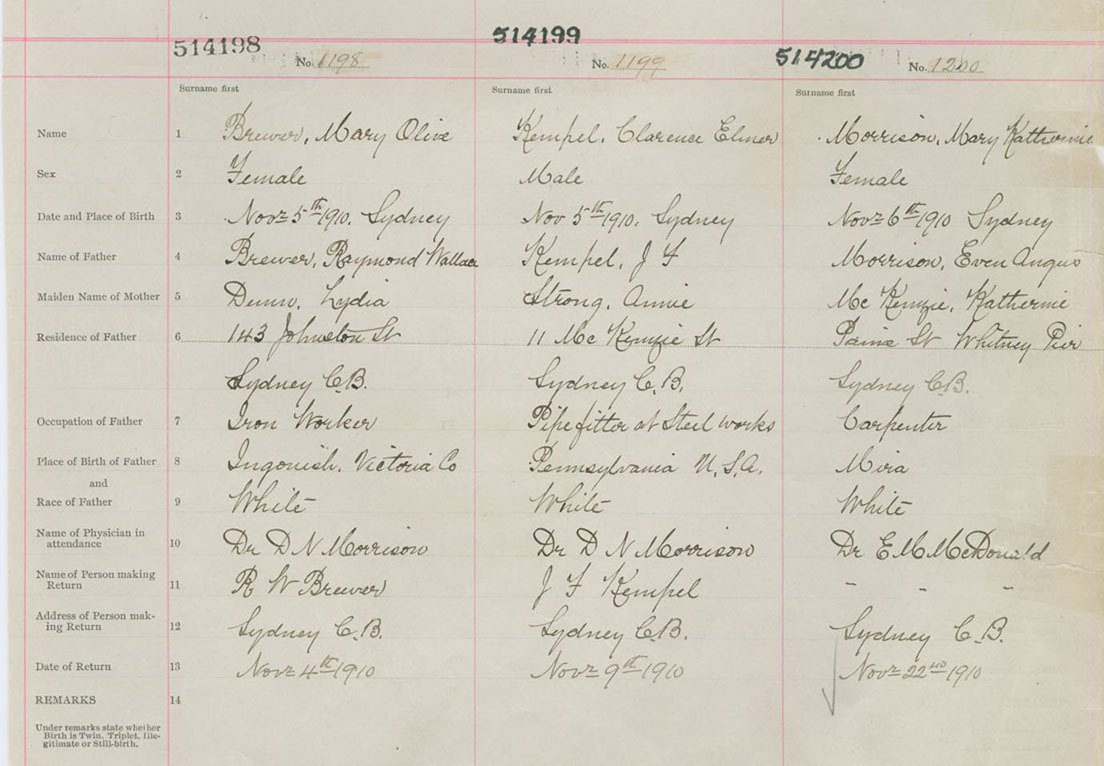 514198 514199 514200
No. 1198 No. 1199 No. 1200
Surname first Surname first Surname first
Name 1 Brewer, Mary Olive Kempel, Clarence Elmer Morrison, Mary Katherine
Sex 2 Female Male Female
Date and Place of Birth 3 Novr 5th 1910. Sydney Nov 5th 1910. Sydney Novr 6th 1910 Sydney
Name of Father 4 Brewer, Raymond Wallace Kempel, J F Morrison, Even Angus
Maiden Name of Mother 5 Dunn, Lydia Strong, Annie Mc Kenzie, Katherine
Residence of Father 6 143 Johnston St 11 Mc Kenzie St St Whitney Pier
Sydney C.B. Sydney C.B. Sydney C.B.
Occupation of Father 7 Iron Worker Pipe fitter at Steel works Carpenter
Place of Birth of Father 8 Ingonish. Victoria Co Pennsylvania U.S.A. Mira
and
Race of Father 9 White White White
Name of Physician in
attendance 10 Dr D N Morrison Dr D N Morrison Dr E M McDonald
Name of Person making
Return 11 R W Brewer J F Kempel - - -
Address of Person mak-
ing Return 12 Sydney C.B. Sydney C.B. Sydney C.B.
Date of Return 13 Novr 4th 1910 Novr 9th 1910 Novr 22nd 1910
REMARKS 14
Under remarks state whether
Birth is Twin, Triplet, Ille-
gitimate or Still-birth.